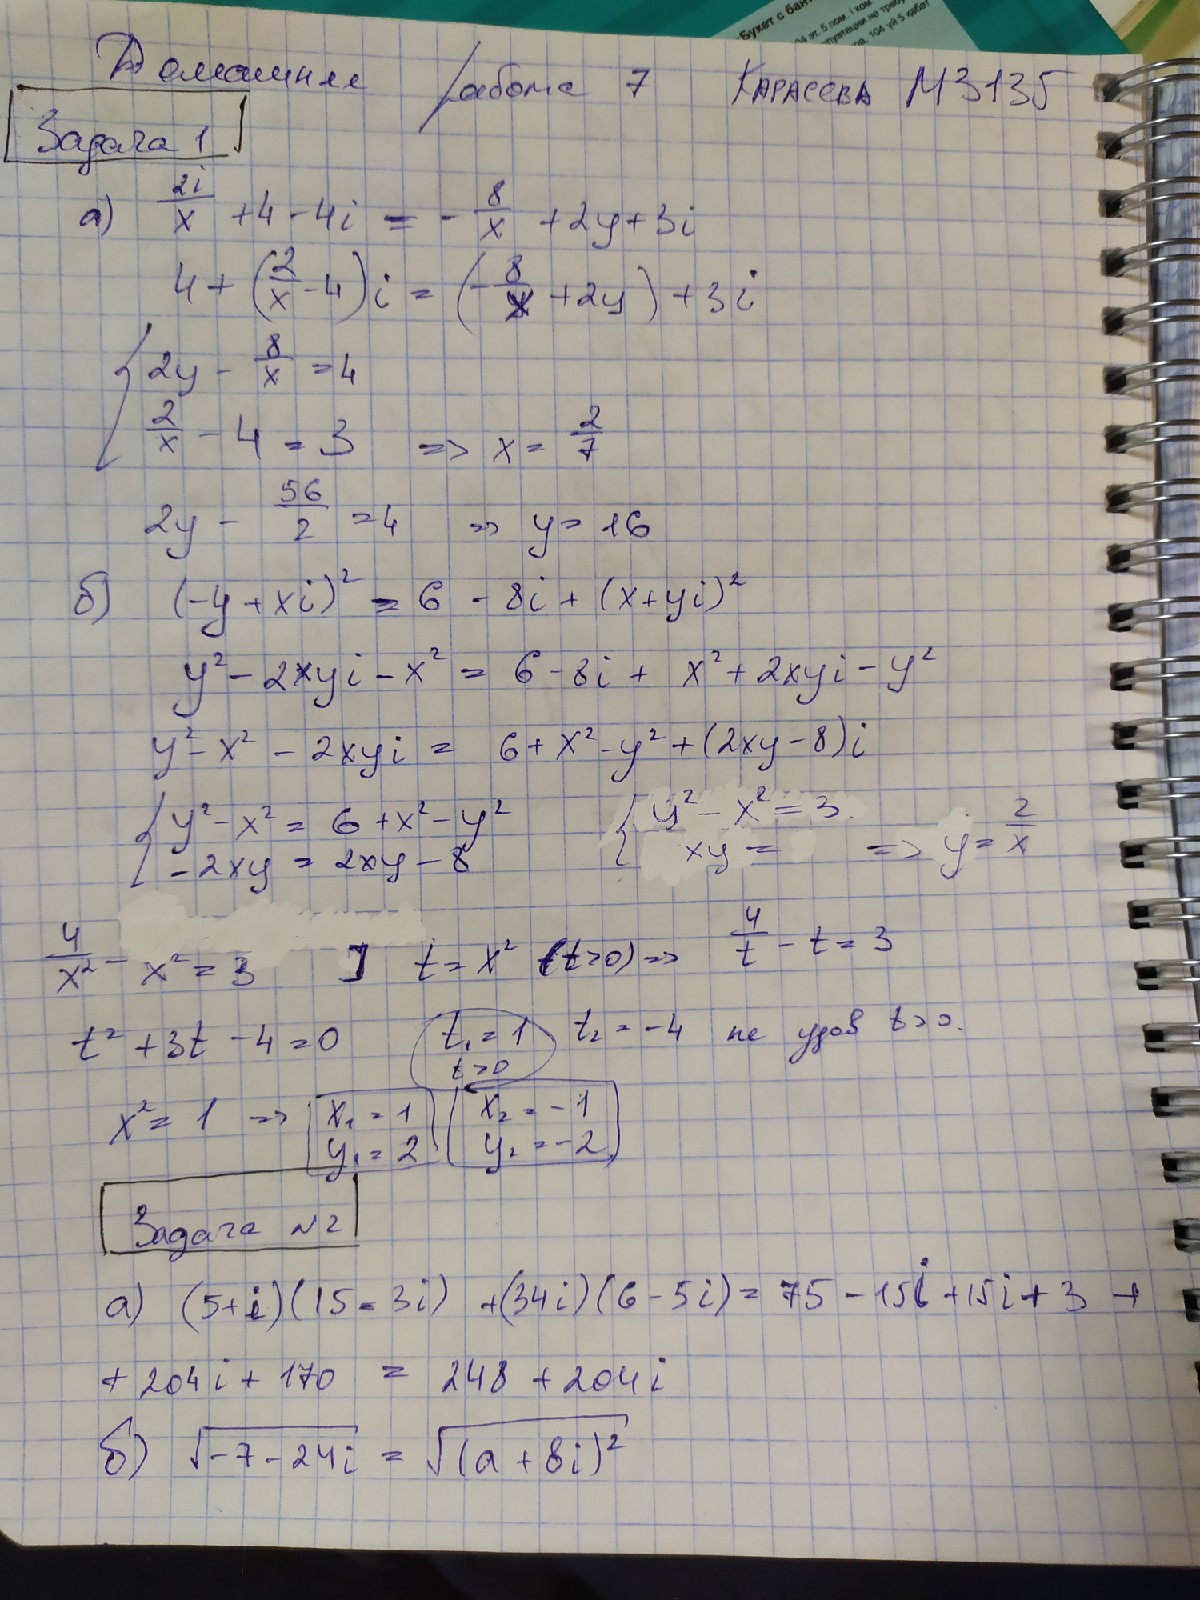 Букет с бант
04 эт. 5 пом. I ком.
104 уй 5 қабат
Домашняя работа 7 КАРАСЕВА М3135
Задача 1
а) 2i/x + 4 - 4i = - 8/x + 2y + 3i
4 + (2/x - 4) i = (- 8/x + 2y) + 3i
{ 2y - 8/x = 4
2/x - 4 = 3 => x = 2/7
2y - 56/2 = 4 => y = 16
б) (-y + xi)² = 6 - 8i + (x + yi)²
y² - 2xyi - x² = 6 - 8i + x² + 2xyi - y²
y² - x² - 2xyi = 6 + x² - y² + (2xy - 8)i
{ y² - x² = 6 + x² - y² { y² - x² = 3
-2xy = 2xy - 8 xy = => y = 2/x
4/x² - x² = 3 ] t = x² (t>0) => 4/t - t = 3
t² + 3t - 4 = 0 t₁ = 1 t₂ = -4 не удов t>0.
t>0
x² = 1 => x₁ = 1 x₂ = -1
y₁ = 2 y₂ = -2
Задача №2
а) (5+i)(15-3i) + (34i)(6-5i) = 75 - 15i + 15i + 3 +
+ 204i + 170 = 248 + 204i
б) √(-7 - 24i) = √((a + 8i)²)